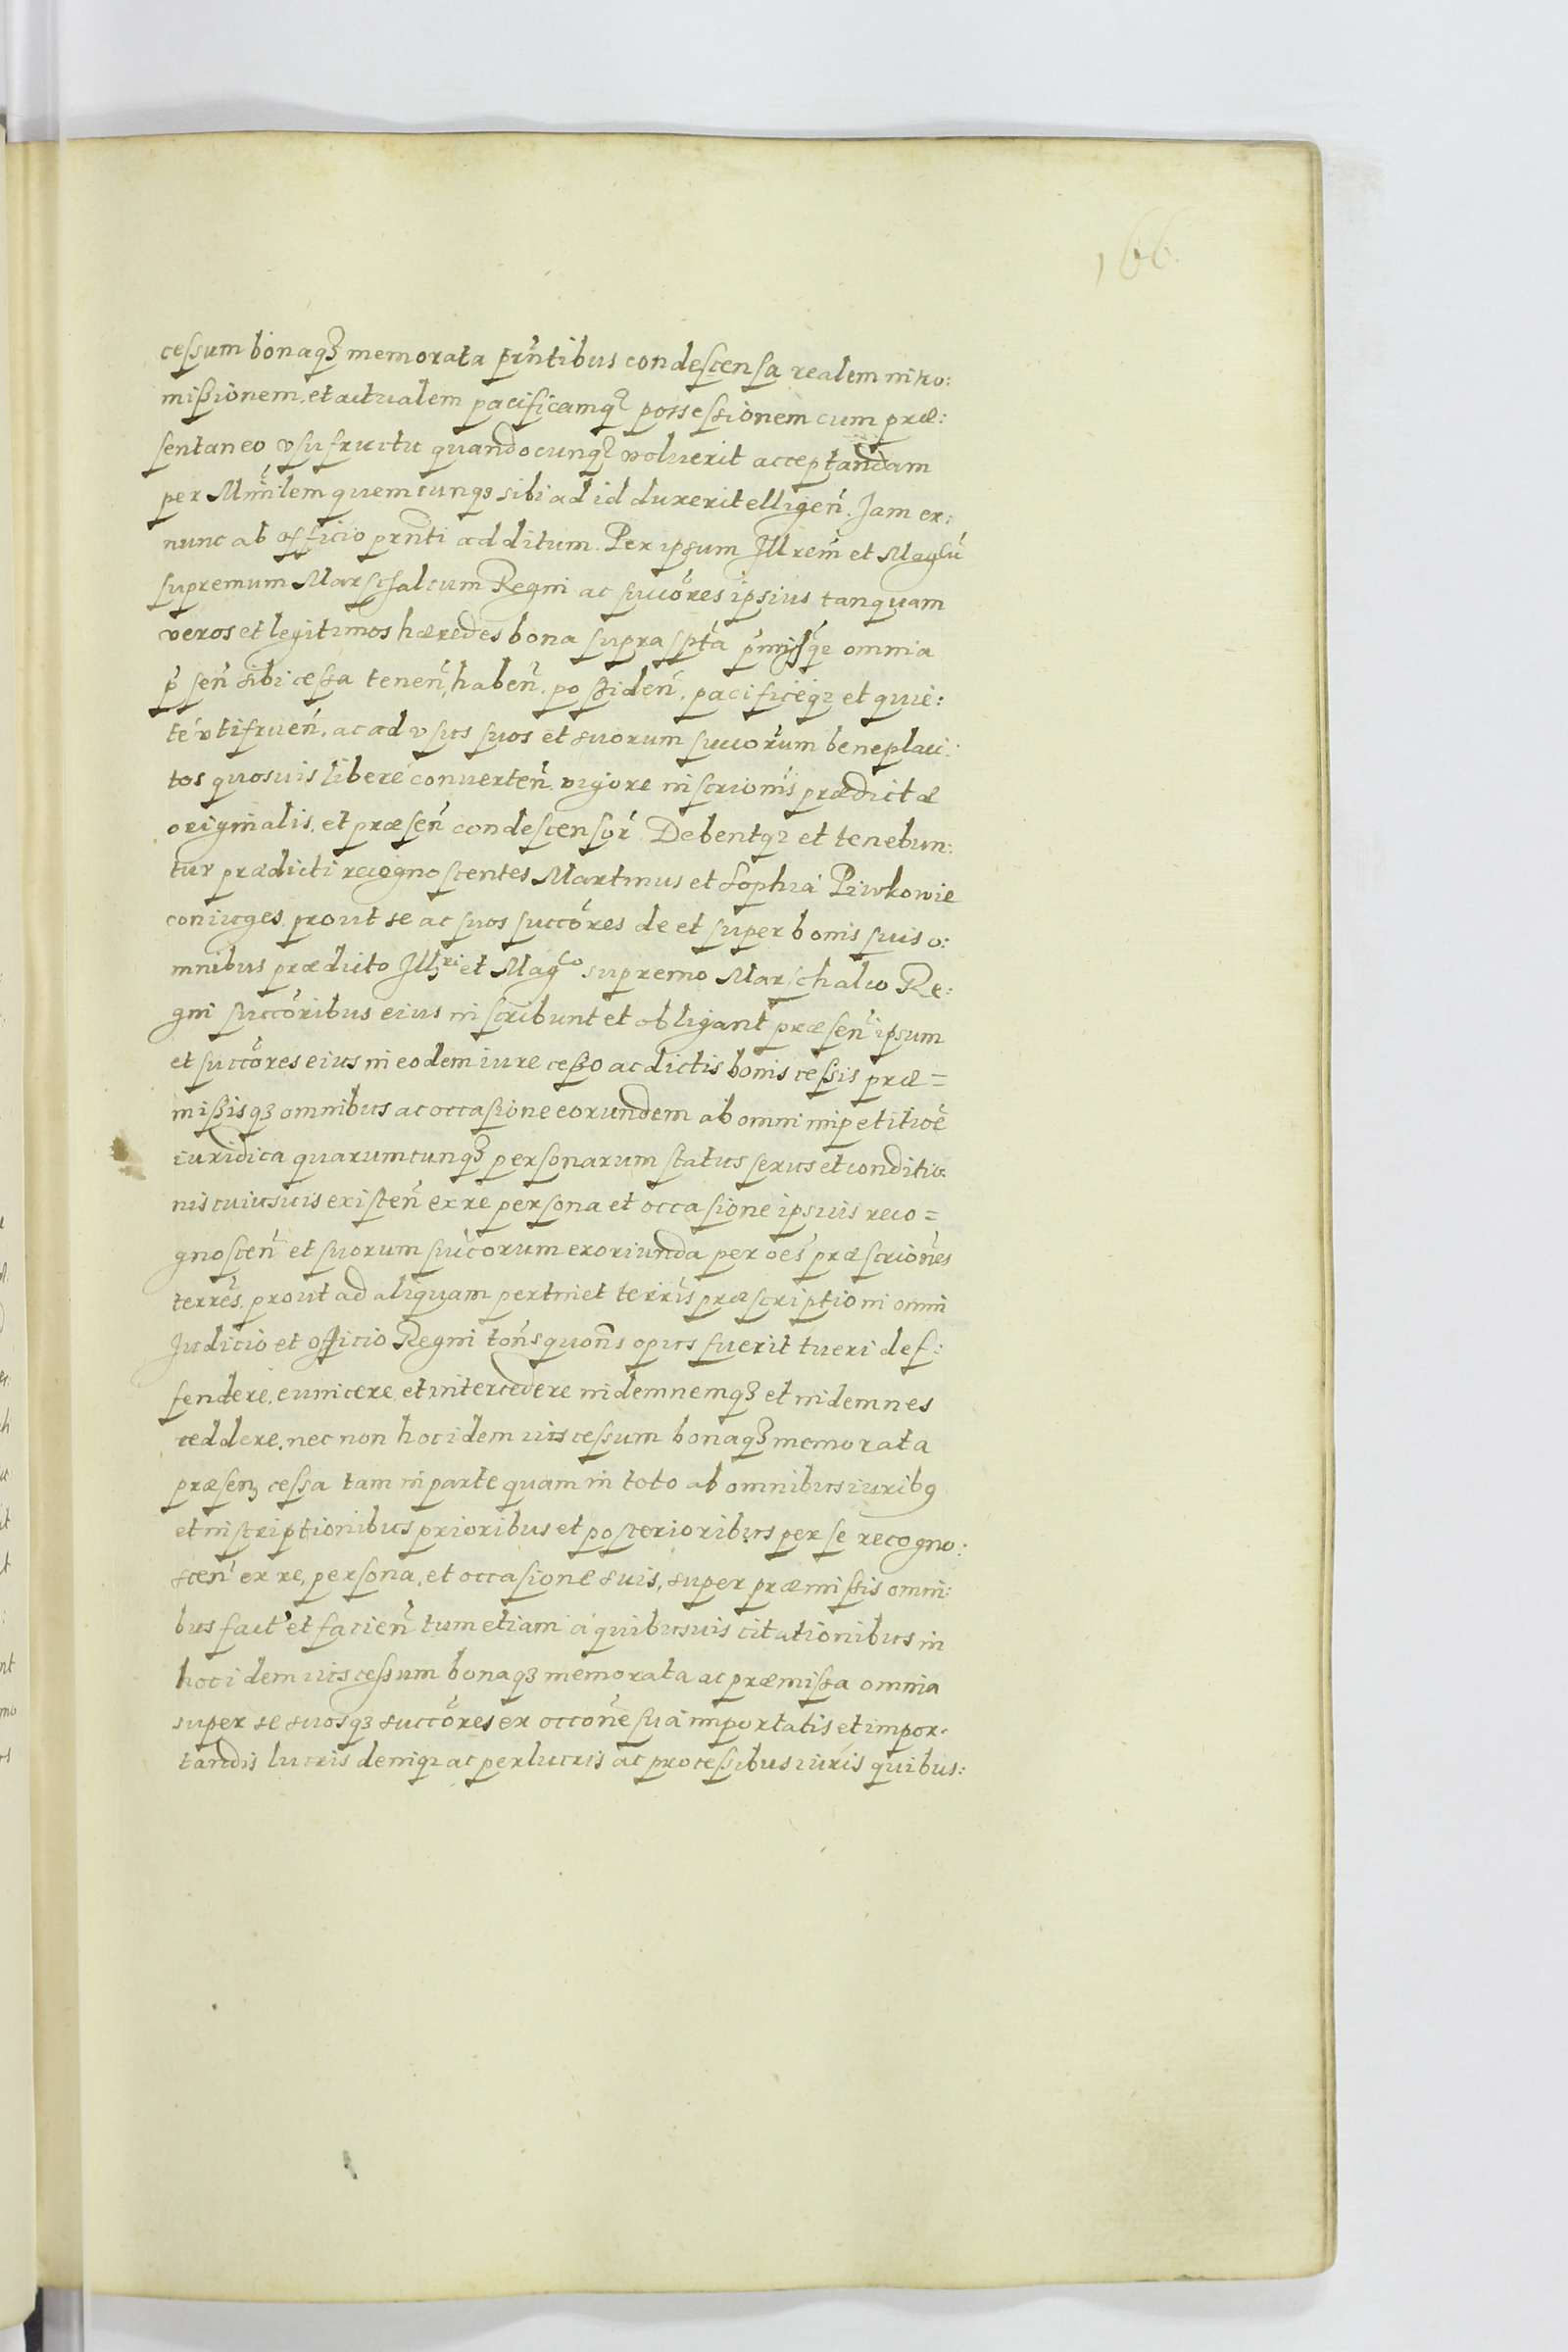 166
cessum bonaqꝫ memorata prn̄tibus condescensa realem intro:
missionem. et actualem pacificamqꝫ possessionem cum præ:
sentaneo vsufructu quandocunqꝫ voluerit acceptandam
per Mīnrlem quemcunqꝫ sibi ad id duxerit elligen̄. Jam ex:
nunc ab officio prn̄ti additum. Per ipsum Jllrem̄ et Magcū
supremum Marschalcum Regni ac succōres ipsius tanquam
veros et legitimos hæredes bona suprasptā omnia
p̄sen̄ sibi cessa tenen̄, haben̄. possiden̄. pacificeqꝫ et quie:
té vtifruen̄. ac ad vsus suos et suorum succorūm beneplaci:
tos quosuis liberè conuerten̄. vigore inscrionīs prædictæ
originalis. et præsen̄ condescensōr. Debentqꝫ et tenebun:
tur prædicti recognoscentes Martinus et Sophia Piwkowie
coniuges. prout se ac suos succōres de et super bonis suis o:
mnibus prædicto Jllri et Magco supremo Marschalco Re:
gni succōribus eius inscribunt et obligant præsen̄ ipsum
et succōres eius in eodem iure cesso ac dictis bonis cessis præ=
missisqꝫ omnibus ac occasione eorundem ab omni impetitioē
iuridica quarumcunqꝫ personarum status sexus et conditio:
nis cuiusuis existen̄ ex re persona et occasione ipsius reco=
gnoscen̄ et suorum succorum exoriunda per oēs præscrionēs
terrēs. prout ad aliquam pertinet terrīs præscriptioni omni
Judicio et officio Regni ton̄s quon̄s opus fuerit tueri def:
fendere. euincere. et intercedere indemnemqꝫ et indemnes
reddere. nec non hoc idem ius cessum bonaqꝫ memorata
præsenꝫ cessa tam in parte quam in toto ab omnibus iuribꝯ
et inscriptionibus prioribus et posterioribus per se recogno:
scen̄ ex re, persona, et occasione suis, super præmissis omni:
bus fact' et facien̄ tum etiam à quibusuis citationibus in
hoc idem ius cessum bonaqꝫ memorata ac præmissa omnia
super se suosqꝫ succōres ex occonē suá importatis et impor:
tandis lucris deniqꝫ ac perlucris ac processibus iuris quibus: